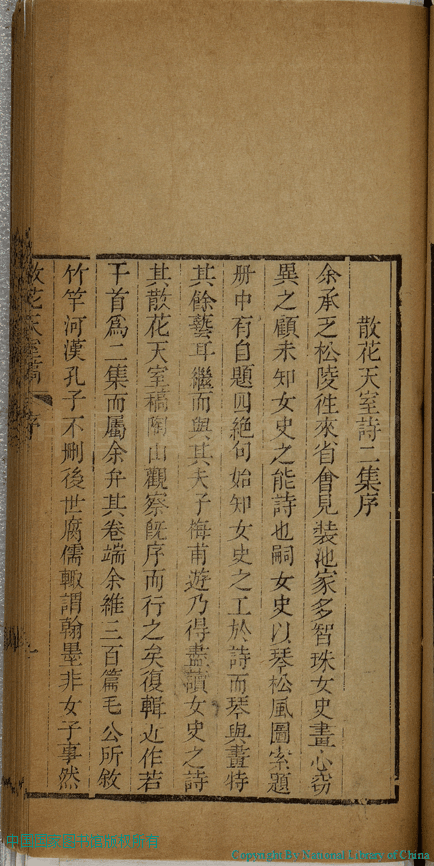 散花天室詩二集序
余承乏松陵徃來省會見裝池家多智珠女史畫心竊
異之顧未知女史之能詩也嗣女史以琴松風圖索題
册中有自題四絶句始知女史之工於詩而琴與畫特
其餘藝耳繼而與其夫子梅甫遊乃得盡讀女史之詩
其散花天室稿陶山觀察旣序而行之矣復輯近作若
干首爲二集而屬余弁其卷端余維三百篇毛公所敘
竹竿河漢孔子不刪後世腐儒輙謂翰墨非女子事然
散花天室稿 序
Copyright By National Library of China